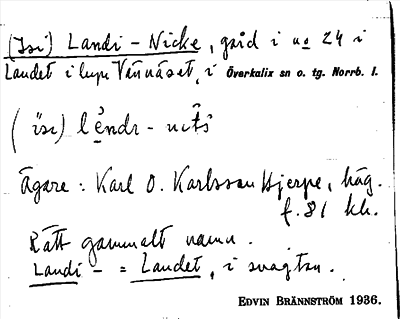 (Isi) Landi - Nicke, gård i no 24 i
Landet i byn Vännäset, i Överkalix sn o. tg. Norrb. l.
Ägare : Karl O. Karlsson Hjerpe, häg.
f. 81 kh.
Rätt gammalt namn.
Landi - = Landet, i
EDVIN BRÄNNSTRÖM 1936.